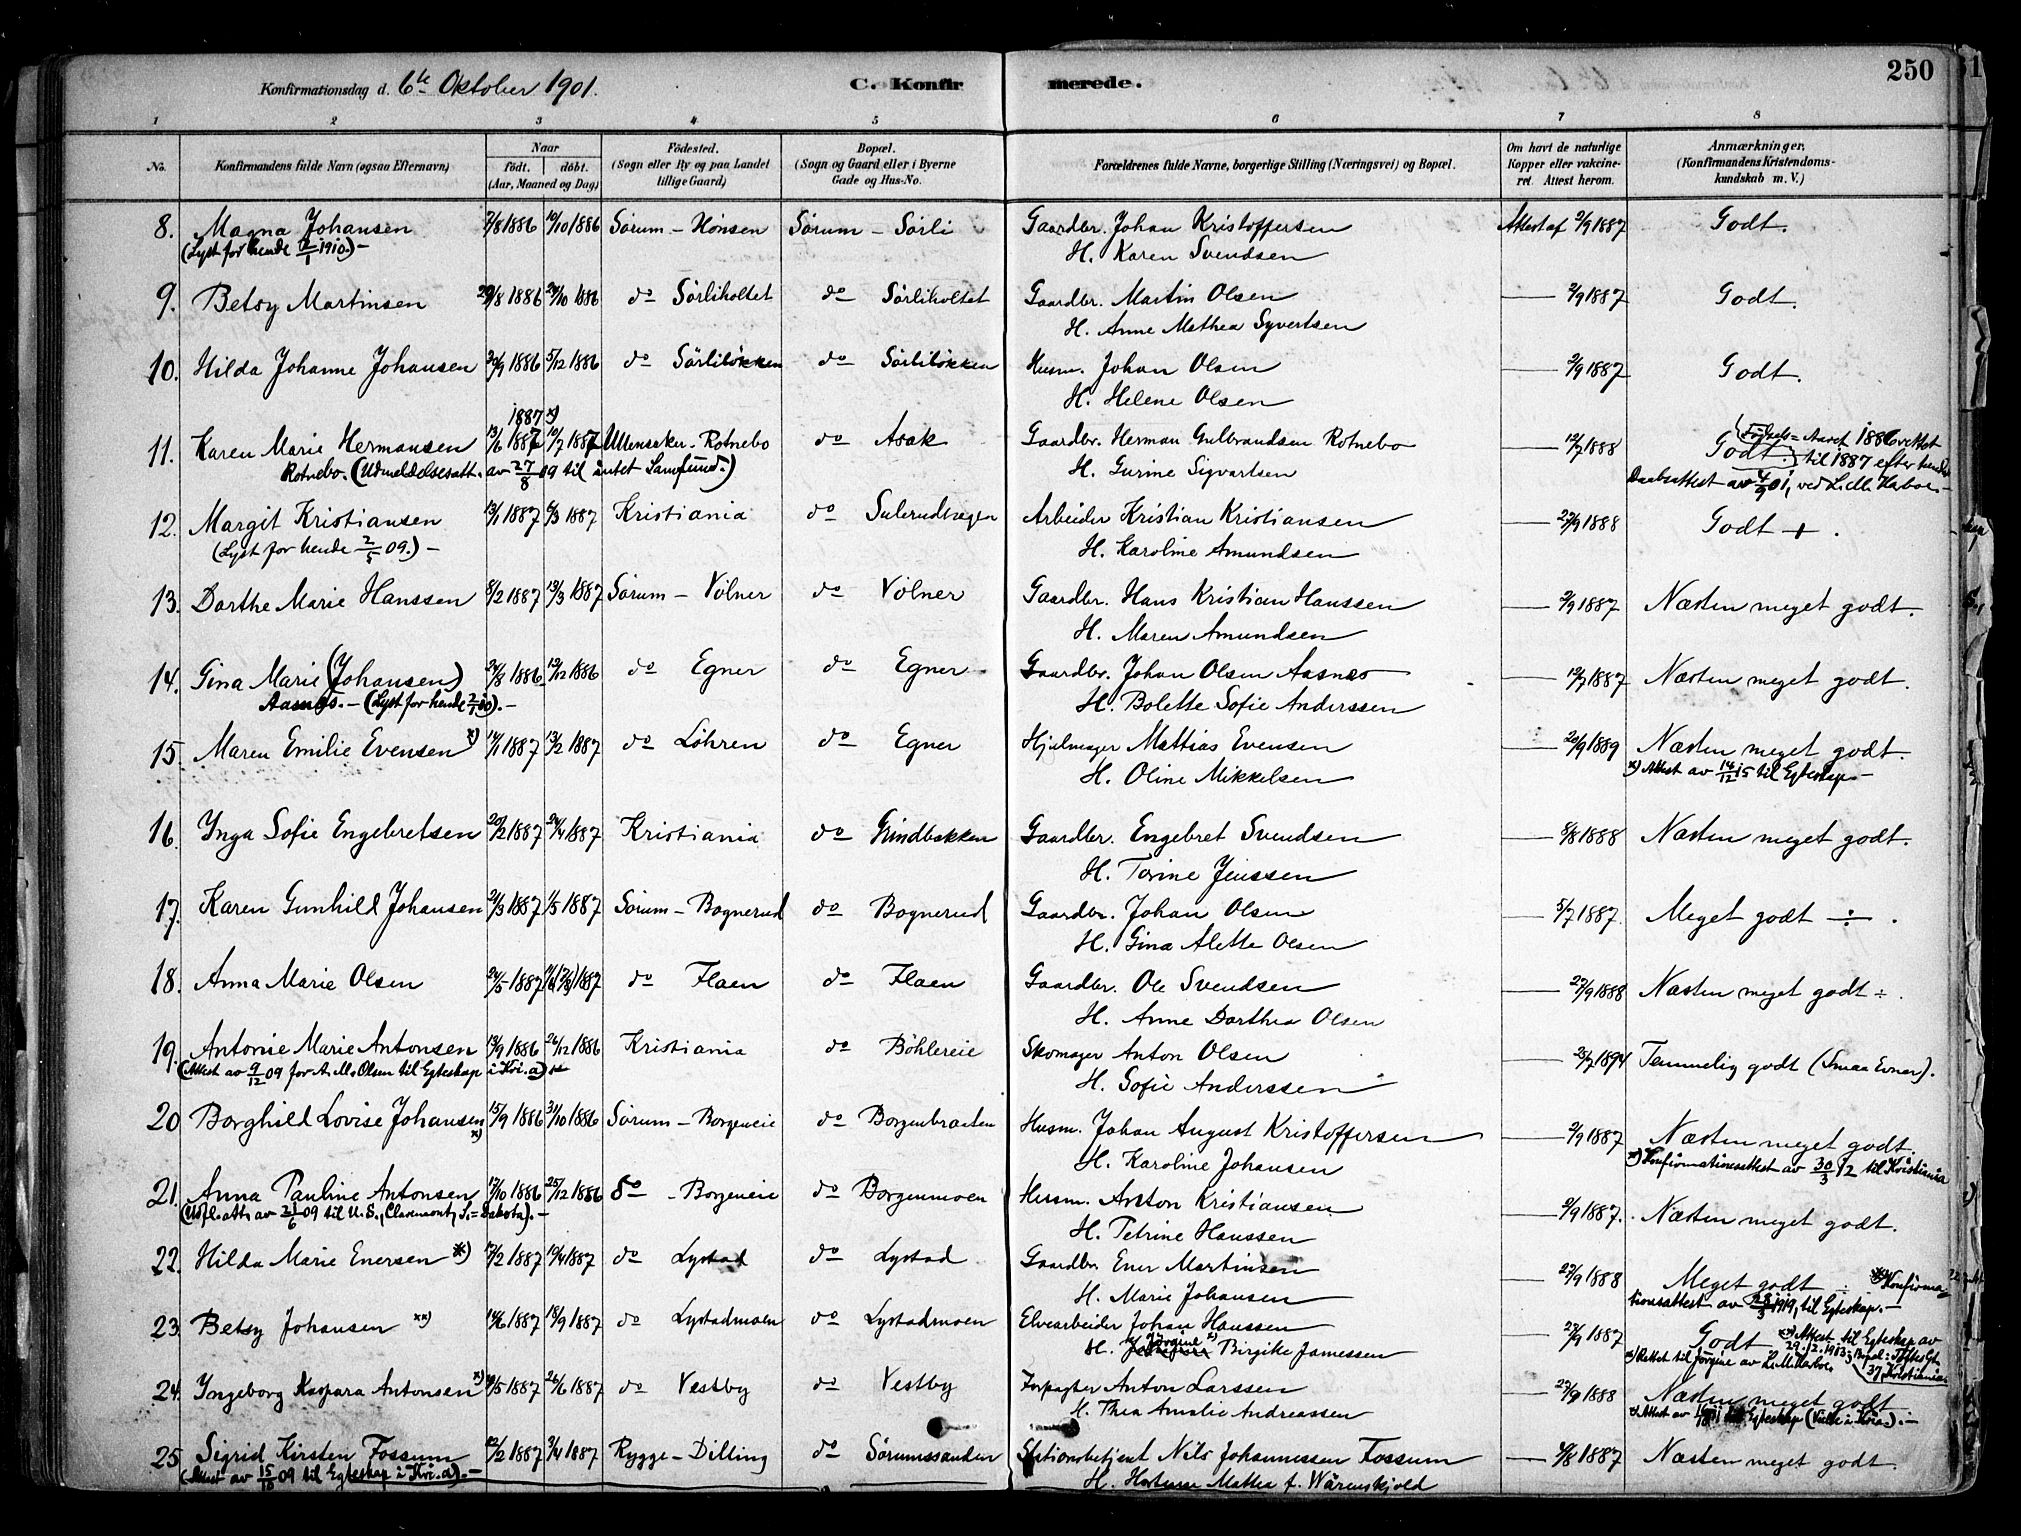 Konfirmationsdag d. 6te Oktober 1901. C. Konfirmerede. 250
1 2 3 4 5 6 7 8
No. Konfirmandens fulde Navn (ogsaa Efternavn) Naar født. døbt. (Aar, Maaned og Dag) Fødested. (Sogn eller By og paa Landet tillige Gaard) Bopæl. (Sogn og Gaard eller i Byerne Gade og Hus-No. Forældrenes fulde Navne, borgerlige Stilling (Næringsvei) og Bopæl. Om havt de naturlige Kopper eller vakcineret. Attest herom. Anmærkninger. (Konfirmandens Kristendomskundskab m. V.)
8. Magna Johansen 7/8 1886 10/10 1886 Sørum - Hønsen Sørum - Sørli Gaardbr. Johan Kristoffersen Attest af 2/9 1887 Godt.
(Lyst for hende 2/1 1910.) - H. Karen Svendsen
9. Betsy Martinsen 29/8 1886 24/10 1886 do Sørliholtet do Sørliholtet Gaardbr. Martin Olsen — 2/9 1887 Godt.
H. Anne Mathea Syvertsen
10. Hilda Johanne Johansen 30/9 1886 5/12 1886 do Sørliløkken do Sørliløkken Husm. Johan Olsen — 2/9 1887 Godt.
H. Helene Olsen
1887 x)
11. Karen Marie Hermansen 13/6 1887 10/7 1887 Ullensaker - Rotnebo do Asak Gaardbr. Herman Gulbrandsen Rotnebo — 12/7 1888 Godt. Fødsels=Aaret 1886 rettet til 1887 efter
Rotnebo. (Udmeldelsesatt. av 27/8 09 til intet Samfund.) H. Gurine Sigvartsen Daabsattest av 4/9 01, ved
12. Margit Kristiansen 13/1 1887 6/3 1887 Kristiania do Arbeider Kristian Kristiansen — 22/9 1888 Godt + .
(Lyst for hende 2/5 09.) - H. Karoline Amundsen
13. Dorthe Marie Hanssen 8/2 1887 13/3 1887 Sørum - Vølner do Vølner Gaardbr. Hans Kristian Hanssen — 2/9 1887 Næsten meget godt.
H. Maren Amundsen
14. Gina Marie (Johansen) 24/8 1886 12/12 1886 do Egner do Egner Gaardbr. Johan Olsen Aasnæs — 12/7 1887 Næsten meget godt.
Aasnæs. - (Lyst for hende 2/1 10). - H. Bolette Sofie Anderssen
15. Maren Emilie Evensen x) 14/1 1887 13/2 1887 do Løhren do Egner Hjulmager Mattias Evensen — 20/9 1889 Næsten meget godt.
H. Oline Mikkelsen x) Attest av 14/12 15 til Egteskap. -
16. Ynga Sofie Engebretsen 20/2 1887 24/4 1887 Kristiania do Grindbakken Gaardbr. Engebret Svendsen — 8/8 1888 Næsten meget godt.
H. Torine Jenssen
17. Karen Gunhild Johansen 24/3 1887 1/5 1887 Sørum - Bognerud do Bognerud Gaardbr. Johan Olsen — 5/7 1887. Meget godt ÷ .
H. Gina Alette Olsen
18. Anna Marie Olsen 24/5 1887 1887 do Flaen do Flaen Gaardbr. Ole Svendsen — 22/9 1888 Næsten meget godt ÷ .
H. Anne Dorthea Olsen
19. Antonie Marie Antonsen 13/9 1886 26/12 1886 Kristiania do Bøhlereie Skomager Anton Olsen — 23/7 1894 Temmelig godt (Smaa Evner).
(Attest av 9/12 09 for A. M. Olsen til Egteskap i Kri.a) H. Sofie Anderssen
20 Borghild Lovise Johansen x) 15/9 1886 31/10 1886 Sørum - Borgeneie do Borgenbraaten Husm. Johan August Kristoffersen — 2/9 1887 Næsten meget godt.
H. Karoline Johansen x) Konfirmationsattest av 30/3 12 til Kristiania
21. Anna Pauline Antonsen 17/10 1886 25/12 1886 do - Borgeneie do Borgenmoen Husm. Anton Kristiansen — 2/9 1887. Næsten meget godt.
(Utfl.att. av 21/6 09 til U. S., Claremont, S.=Dakota). - H. Petrine Hanssen
22. Hilda Marie Enersen x) 17/2 1887 19/4 1887 do Lystad do Lystad Gaardbr. Ener Martinsen — 22/9 1888 Meget godt ÷ x) Konfirma-
H. Marie Johansen tionsattest av 28/3 1919, til Egteskap. -
23. Betsy Johansen xx) 14/6 1887 18/9 1887 do Lystadmoen do Lystadmoen Elvearbeider Johan Hanssen — 22/9 1887 Godt xx) Attest til Egteskap av 29.12.1913; Bopæl: 37, Kristiania
H. Jørgine x) Birgitte Jamessen x) Rettet til Jørgine av
24. Yngeborg Kaspara Antonsen x) /5 1887 26/6 1887 do Vestby do Vestby Forpagter Anton Larssen — 22/9 1888 Næsten meget godt
H. Thea Amalie Andreassen x) Attest av til Egteskap
25 Sigrid Kirsten Fossum 12/2 1887 3/4 1887 Rygge - Dilling do Sørumssanden Stationsbetjent Nils Johannessen Fossum — 4/8 1887 Næsten meget godt.
(Attest av 15/10 09 til Egteskap i Kri.a). - H. Mathea f. Wärenskjold